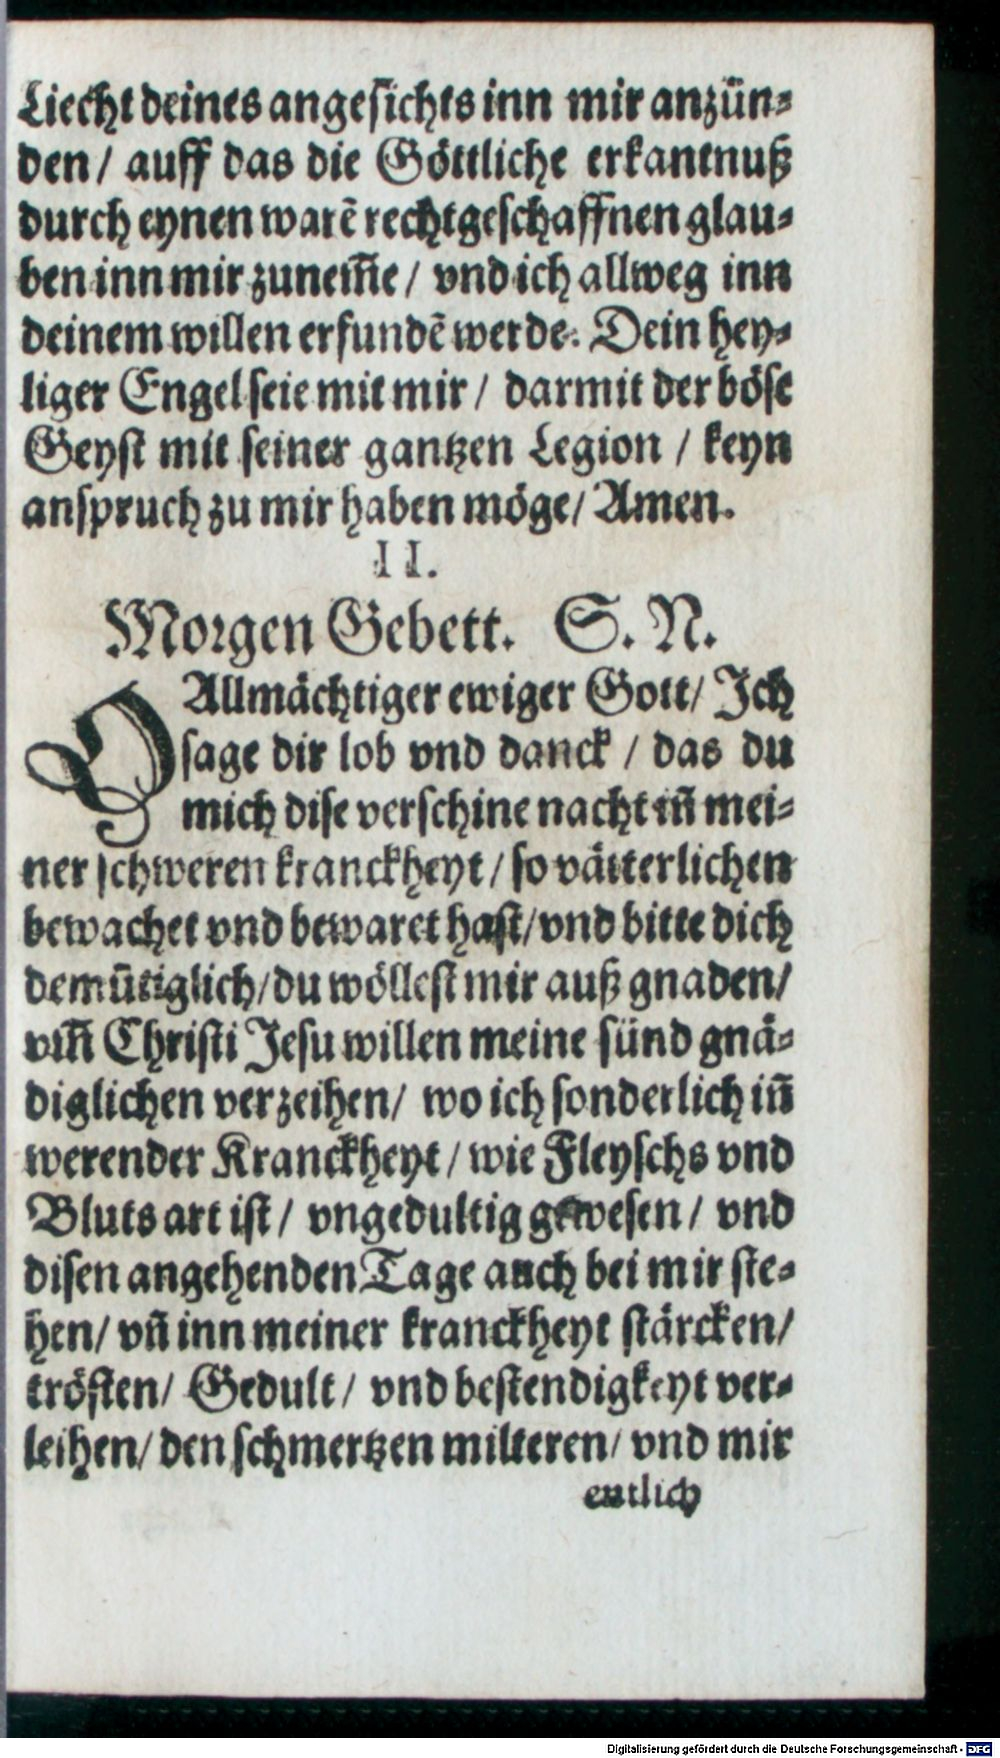 Liecht deines angesichts inn mir anzün-
den / auff das die Göttliche erkantnuß
durch eynen warē rechtgeschaffnen glau-
ben inn mir zunem̄e / vnd ich allweg inn
deinem willen erfundē werde. Dein hey-
liger Engel seie mit mir / darmit der böse
Geyst mit seiner gantzen Legion / keyn
anspruch zu mir haben möge / Amen.
II.
Morgen Gebett. S. N.
O Allmächtiger ewiger Gott / Ich
sage dir lob vnd danck / das du
mich dise verschine nacht iñ mei-
ner schweren kranckheyt / so vätterlichen
bewachet vnd bewaret hast / vnd bitte dich
demütiglich / du wöllest mir auß gnaden /
vm̄ Christi Jesu willen meine sünd gnä-
diglichen verzeihen / wo ich sonderlich iñ
werender Kranckheyt / wie Fleyschs vnd
Bluts art ist / vngedultig gewesen / vnd
disen angehenden Tage auch bei mir ste-
hen / vñ inn meiner kranckheyt stärcken /
trösten / Gedult / vnd bestendigkeyt ver-
leihen / den schmertzen milteren / vnd mir
entlich
Digitalisierung gefördert durch die Deutsche Forschungsgemeinschaft - DFG